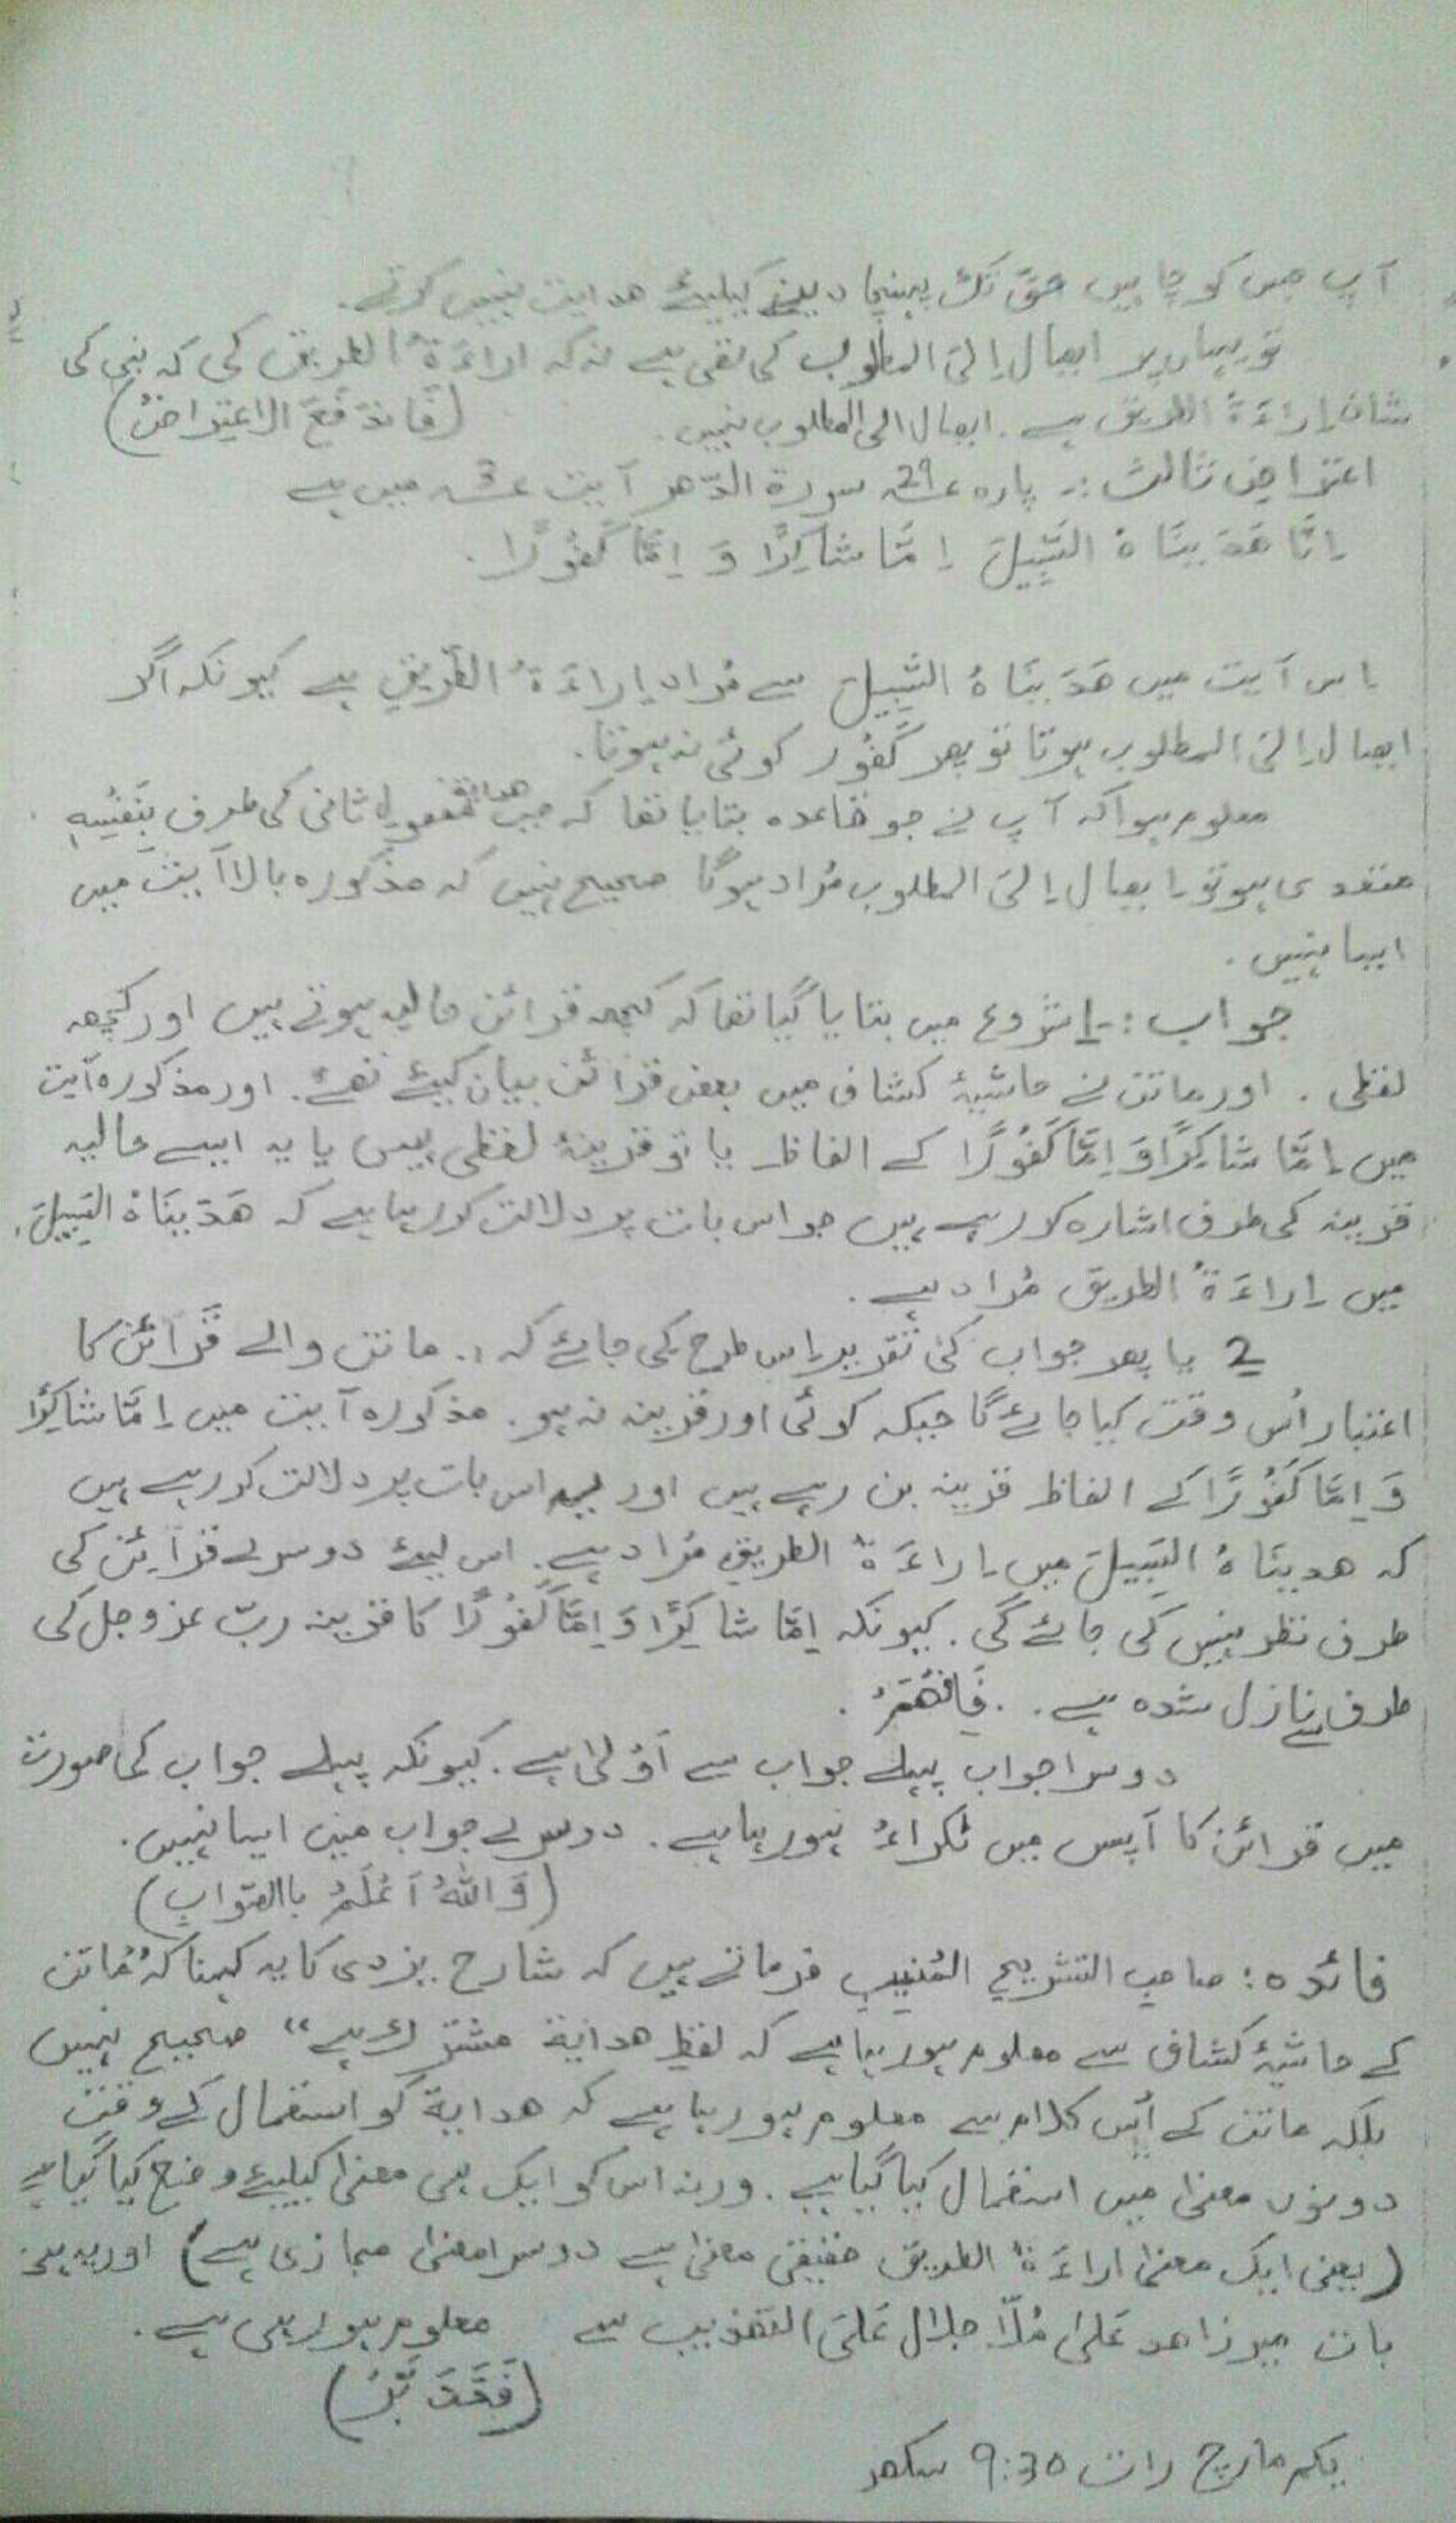 آپ جس کو چاہیں حق تک پہنچا دینے کیلیئے ھدایت نہیں کرتے.
تو یہاں پر ایصال اِلیَ المطلوب کی نفی ہے نہ کہ اراءَۃُ الطریق کی کہ نبی کی
شان اِراءَۃُ الطریق ہے. ایصال الی المطلوب نہیں. (فَانْدَفَعَ الاعتِراضُ)
اعتراضِ ثالث :- پارہ ؏29 سورۃ الدّھر آیت ؏3 میں ہے
اِنَّا ھَدَیْنَاہُ السَّبِیلَ اِمَّا شَاکِرًا وَ اِمَّا کَفُوْرًا.
اِس آیت میں ھَدَیْنَاہُ السَّبِیلَ سے مُراد اِراءَۃُ الطَّریقِ ہے کیونکہ اگر
ایصال اِلیَ المطلوب ہوتا تو پھر کَفُور کوئی نہ ہوتا.
معلوم ہوا کہ آپ نے جو قاعدہ بتایا تھا کہ جب ھدایۃ مفعولِ ثانی کی طرف بِنَفْسِہٖ
متعدی ہو تو ایصال اِلیَ المطلوب مُراد ہوگا صحیح نہیں کہ مذکورہ بالا آیت میں
ایسا نہیں.
جواب :- 1 شروع میں بتایا گیا تھا کہ کچھ قرائن حالیہ ہوتے ہیں اور کچھ
لفظی. اور ماتن نے حاشیۂ کشاف میں بعض قرائن بیان کیئے تھے. اور مذکورہ آیت
میں اِمَّا شَاکِرًا وَ اِمَّا کَفُوْرًا کے الفاظ یا تو قرینۂ لفظی ہیں یا یہ ایسے حالیہ
قرینہ کی طرف اشارہ کر رہے ہیں جو اس بات پر دلالت کر رہا ہے کہ ھَدَیْنَاہُ السَّبِیلَ
میں اِراءَۃُ الطریق مُراد ہے.
2 یا پھر جواب کی تقریر اِس طرح کی جائے کہ ،. ماتن والے قَرَائن کا
اعتبار اُس وقت کیا جائے گا جبکہ کوئی اور قرینہ نہ ہو. مذکورہ آیت میں اِمَّا شاکِرًا
وَ اِمَّا کَفُوْرًا کے الفاظ قرینہ بن رہے ہیں اور یہ اس بات پر دلالت کر رہے ہیں
کہ ھدیناہُ السَّبِیلَ میں اِراءَۃُ الطریقِ مُراد ہے. اس لیئے دوسرے قرَائن کی
طرف نظر نہیں کی جائے گی. کیونکہ اِمَّا شاکِرًا وَ اِمَّا کَفُوْرًا کا قرینہ ربّ عزوجل کی
طرف سے نازل شدہ ہے. .فَافْھَمْ.
دوسرا جواب پہلے جواب سے اَوْلیٰ ہے. کیونکہ پہلے جواب کی صورت
میں قرائن کا آپس میں ٹکراءُ ہو رہا ہے. دوسرے جواب میں ایسا نہیں.
(وَ اللّٰهُ اَعْلَمُ بالصَّوابِ)
فائدہ : صاحبِ التشریحِ المُنیبِ فرماتے ہیں کہ شارح یزدی کا یہ کہنا کہ "ماتن
کے حاشیۂ کشاف سے معلوم ہو رہا ہے کہ لفظِ ھدایۃ مشترک ہے" صحیح نہیں
بلکہ ماتن کے اُس کلام سے معلوم ہو رہا ہے کہ ھدایۃ کو استعمال کے وقت
دونوں معنیٰ میں استعمال کیا گیا ہے. ورنہ اس کو ایک ہی معنیٰ کیلیئے وضع کیا گیا ہے
(یعنی ایک معنیٰ اراءَۃُ الطریق حقیقی معنیٰ ہے دوسرا معنیٰ مجازی ہے) اور یہی
بات میر زاھد عَلیٰ مُلّا جلال عَلیَ التھذیب سے معلوم ہو رہی ہے.
(فَتَدَبَّرْ)
یکم مارچ رات 9:30 سکھر